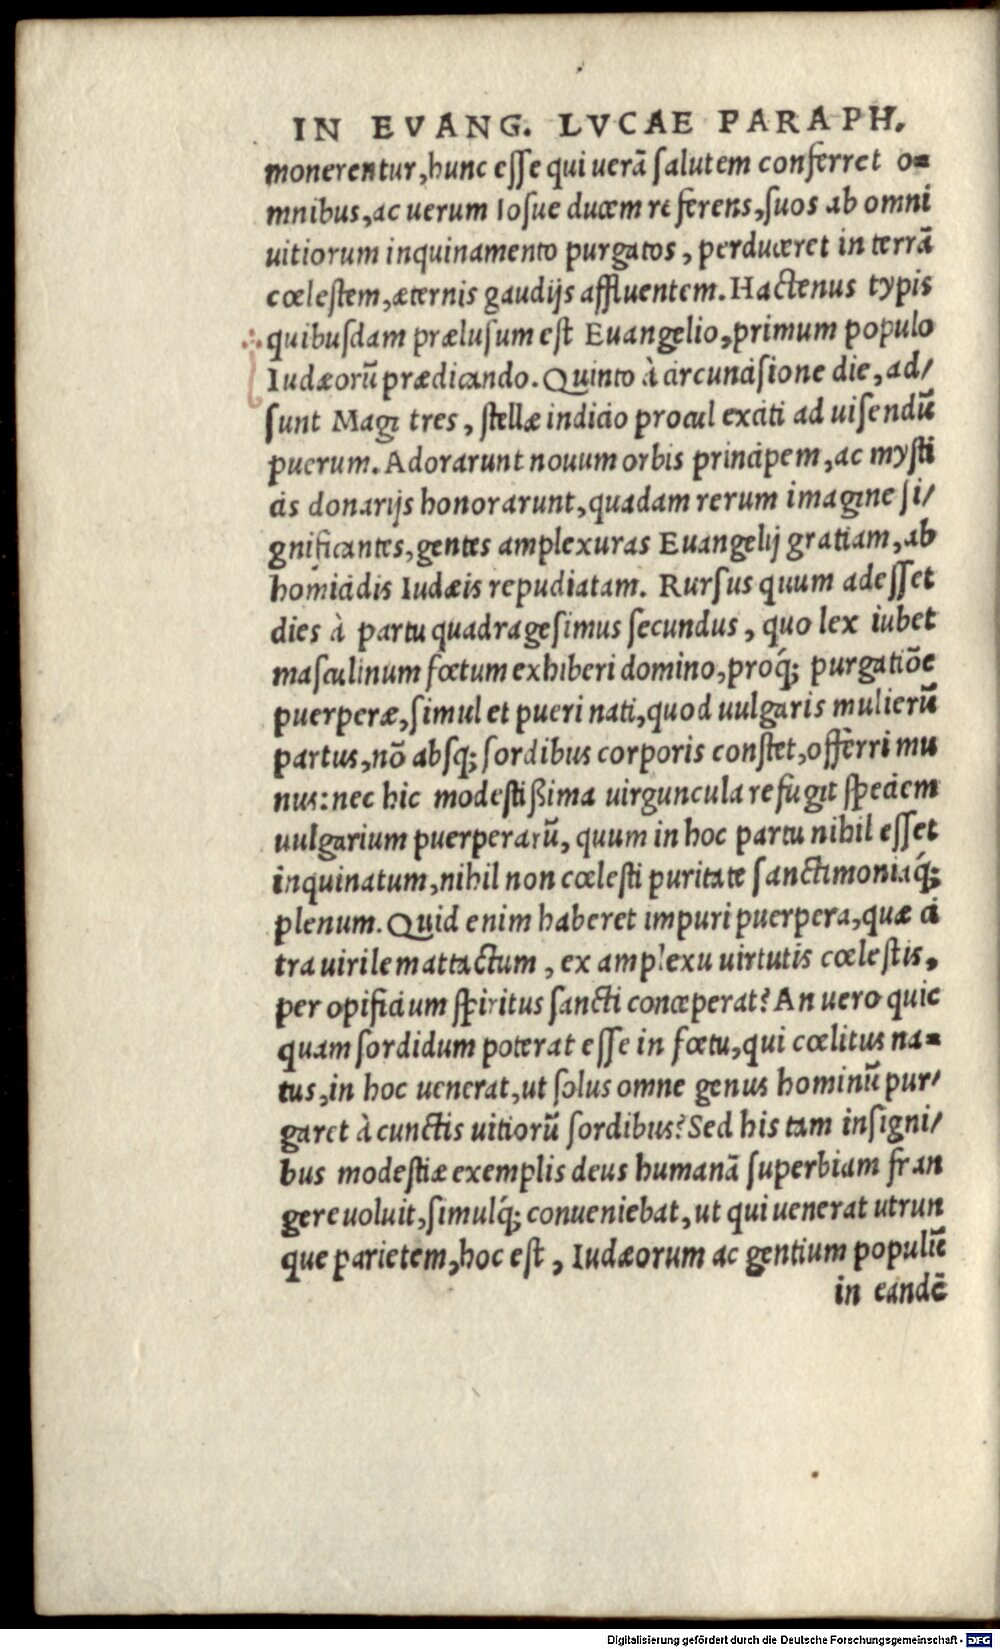 IN EVANG. LVCAE PARAPH.
monerentur, hunc esse qui uerã salutem conferret o=
mnibus, ac uerum Iosue ducem referens, suos ab omni
uitiorum inquinamento purgatos, perduceret in terrã
cœlestem, æternis gaudijs affluentem. Hactenus typis
quibusdam prælusum est Euangelio, primum populo
Iudæorũ prædicando. Quinto à circuncisione die, ad/
sunt Magi tres, stellæ indicio procul exciti ad uisendũ
puerum. Adorarunt nouum orbis principem, ac mysti
cis donarijs honorarunt, quadam rerum imagine si/
gnificantes, gentes amplexuras Euangelij gratiam, ab
homicidis Iudæis repudiatam. Rursus quum adesset
dies à partu quadragesimus secundus, quo lex iubet
masculinum fœtum exhiberi domino, proq́; purgatiõe
puerperæ, simul et pueri nati, quod uulgaris mulierũ
partus, nõ absq; sordibus corporis constet, offerri mu
nus: nec hic modestißima uirguncula refugit speciem
uulgarium puerperarũ, quum in hoc partu nihil esset
inquinatum, nihil non cœlesti puritate sanctimoniaq́;
plenum. Quid enim haberet impuri puerpera, quæ ci
tra uirilem attactum, ex amplexu uirtutis cœlestis,
per opificium spiritus sancti conceperat? An uero quic
quam sordidum poterat esse in fœtu, qui cœlitus na=
tus, in hoc uenerat, ut solus omne genus hominũ pur/
garet à cunctis uitiorũ sordibus? Sed his tam insigni/
bus modestiæ exemplis deus humanã superbiam fran
gere uoluit, simulq́; conueniebat, ut qui uenerat utrun
que parietem, hoc est, Iudæorum ac gentium populũ
in eandẽ
Digitalisierung gefördert durch die Deutsche Forschungsgemeinschaft - DFG